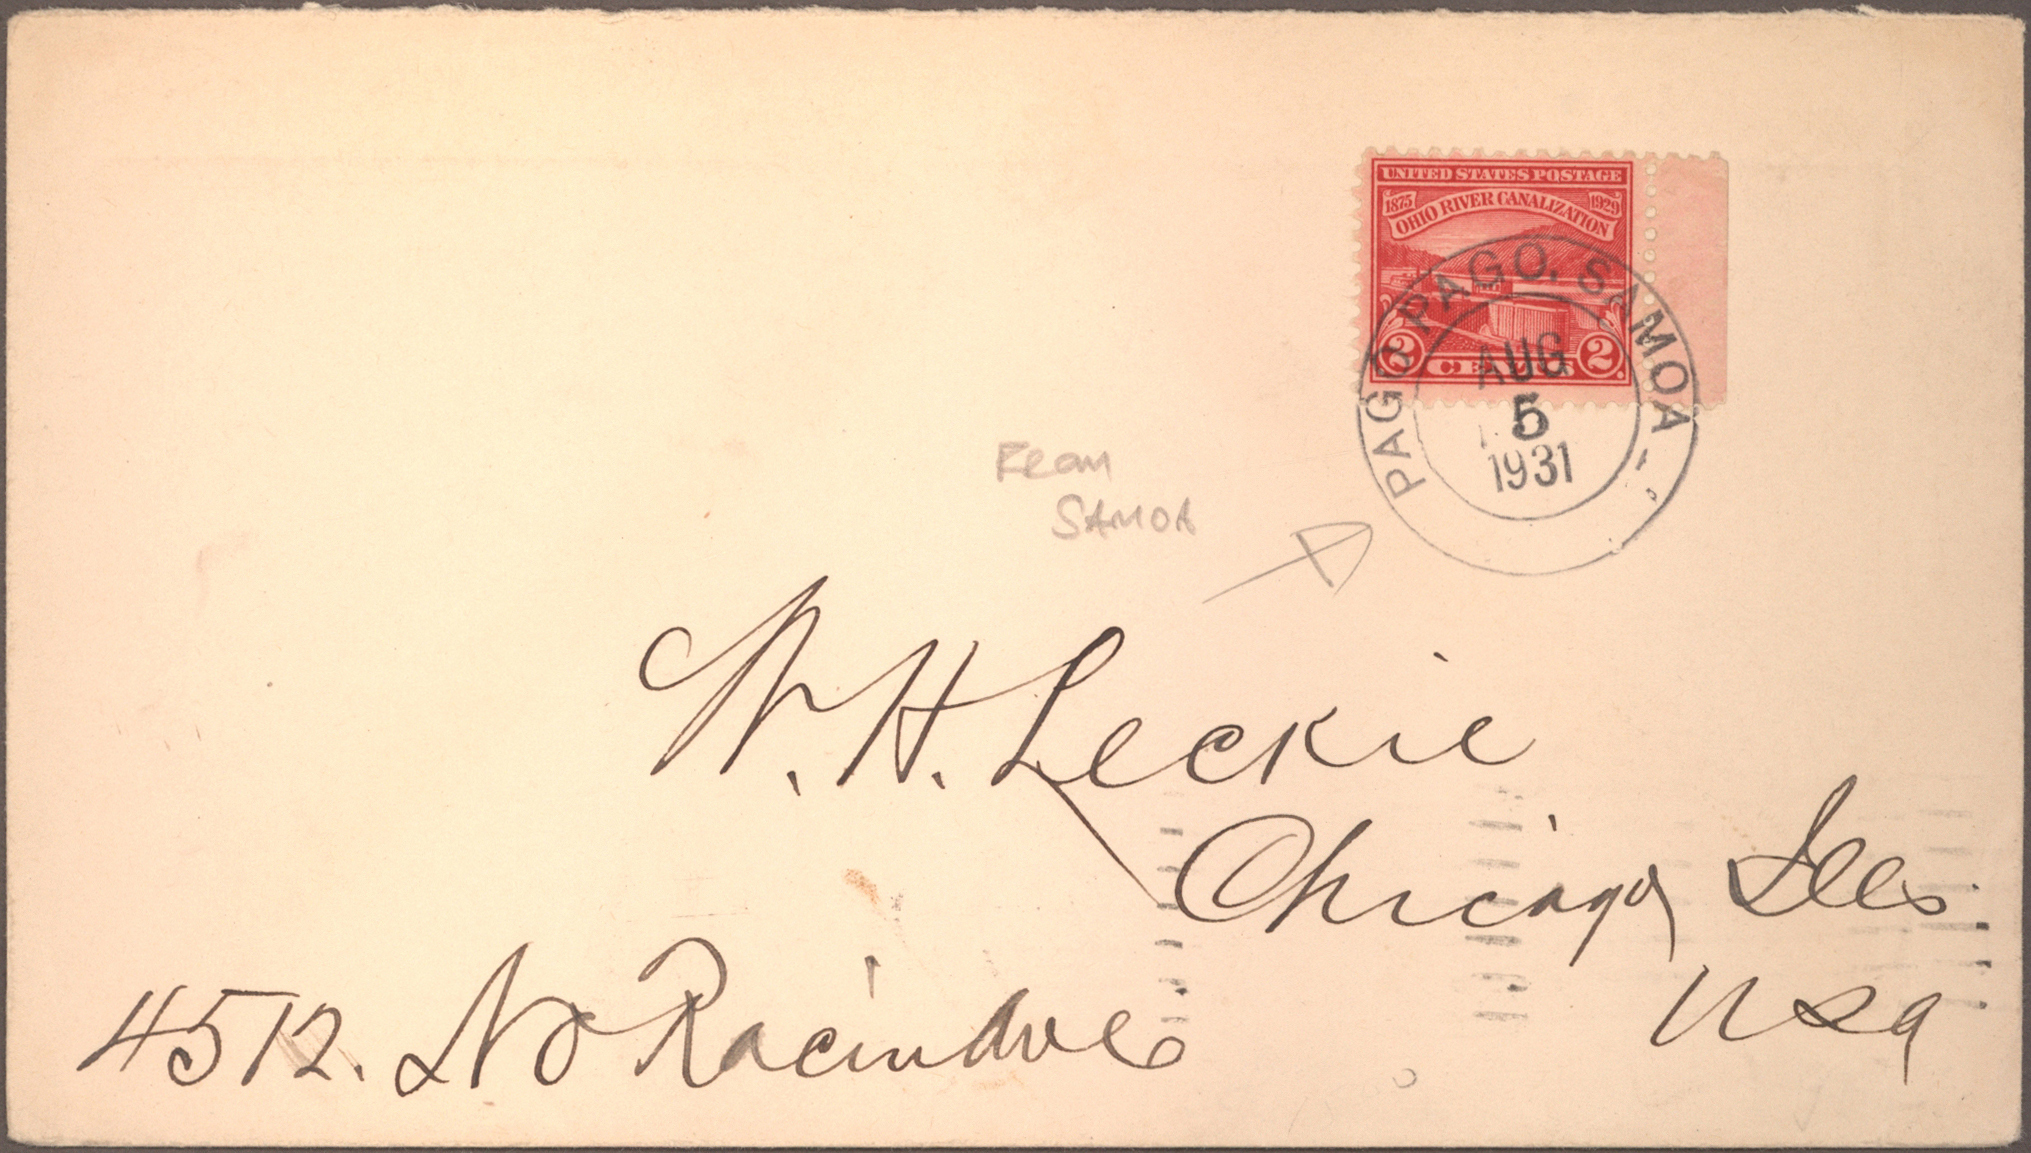 UNITED STATES POSTAGE
1875 1929
OHIO RIVER CANALIZATION
2 CENTS 2
PAGO PAGO, SAMOA
AUG
5
1931
From
SAMOA
W. H. Leckie
Chicago Ills
USA
4512. No Racine Ave